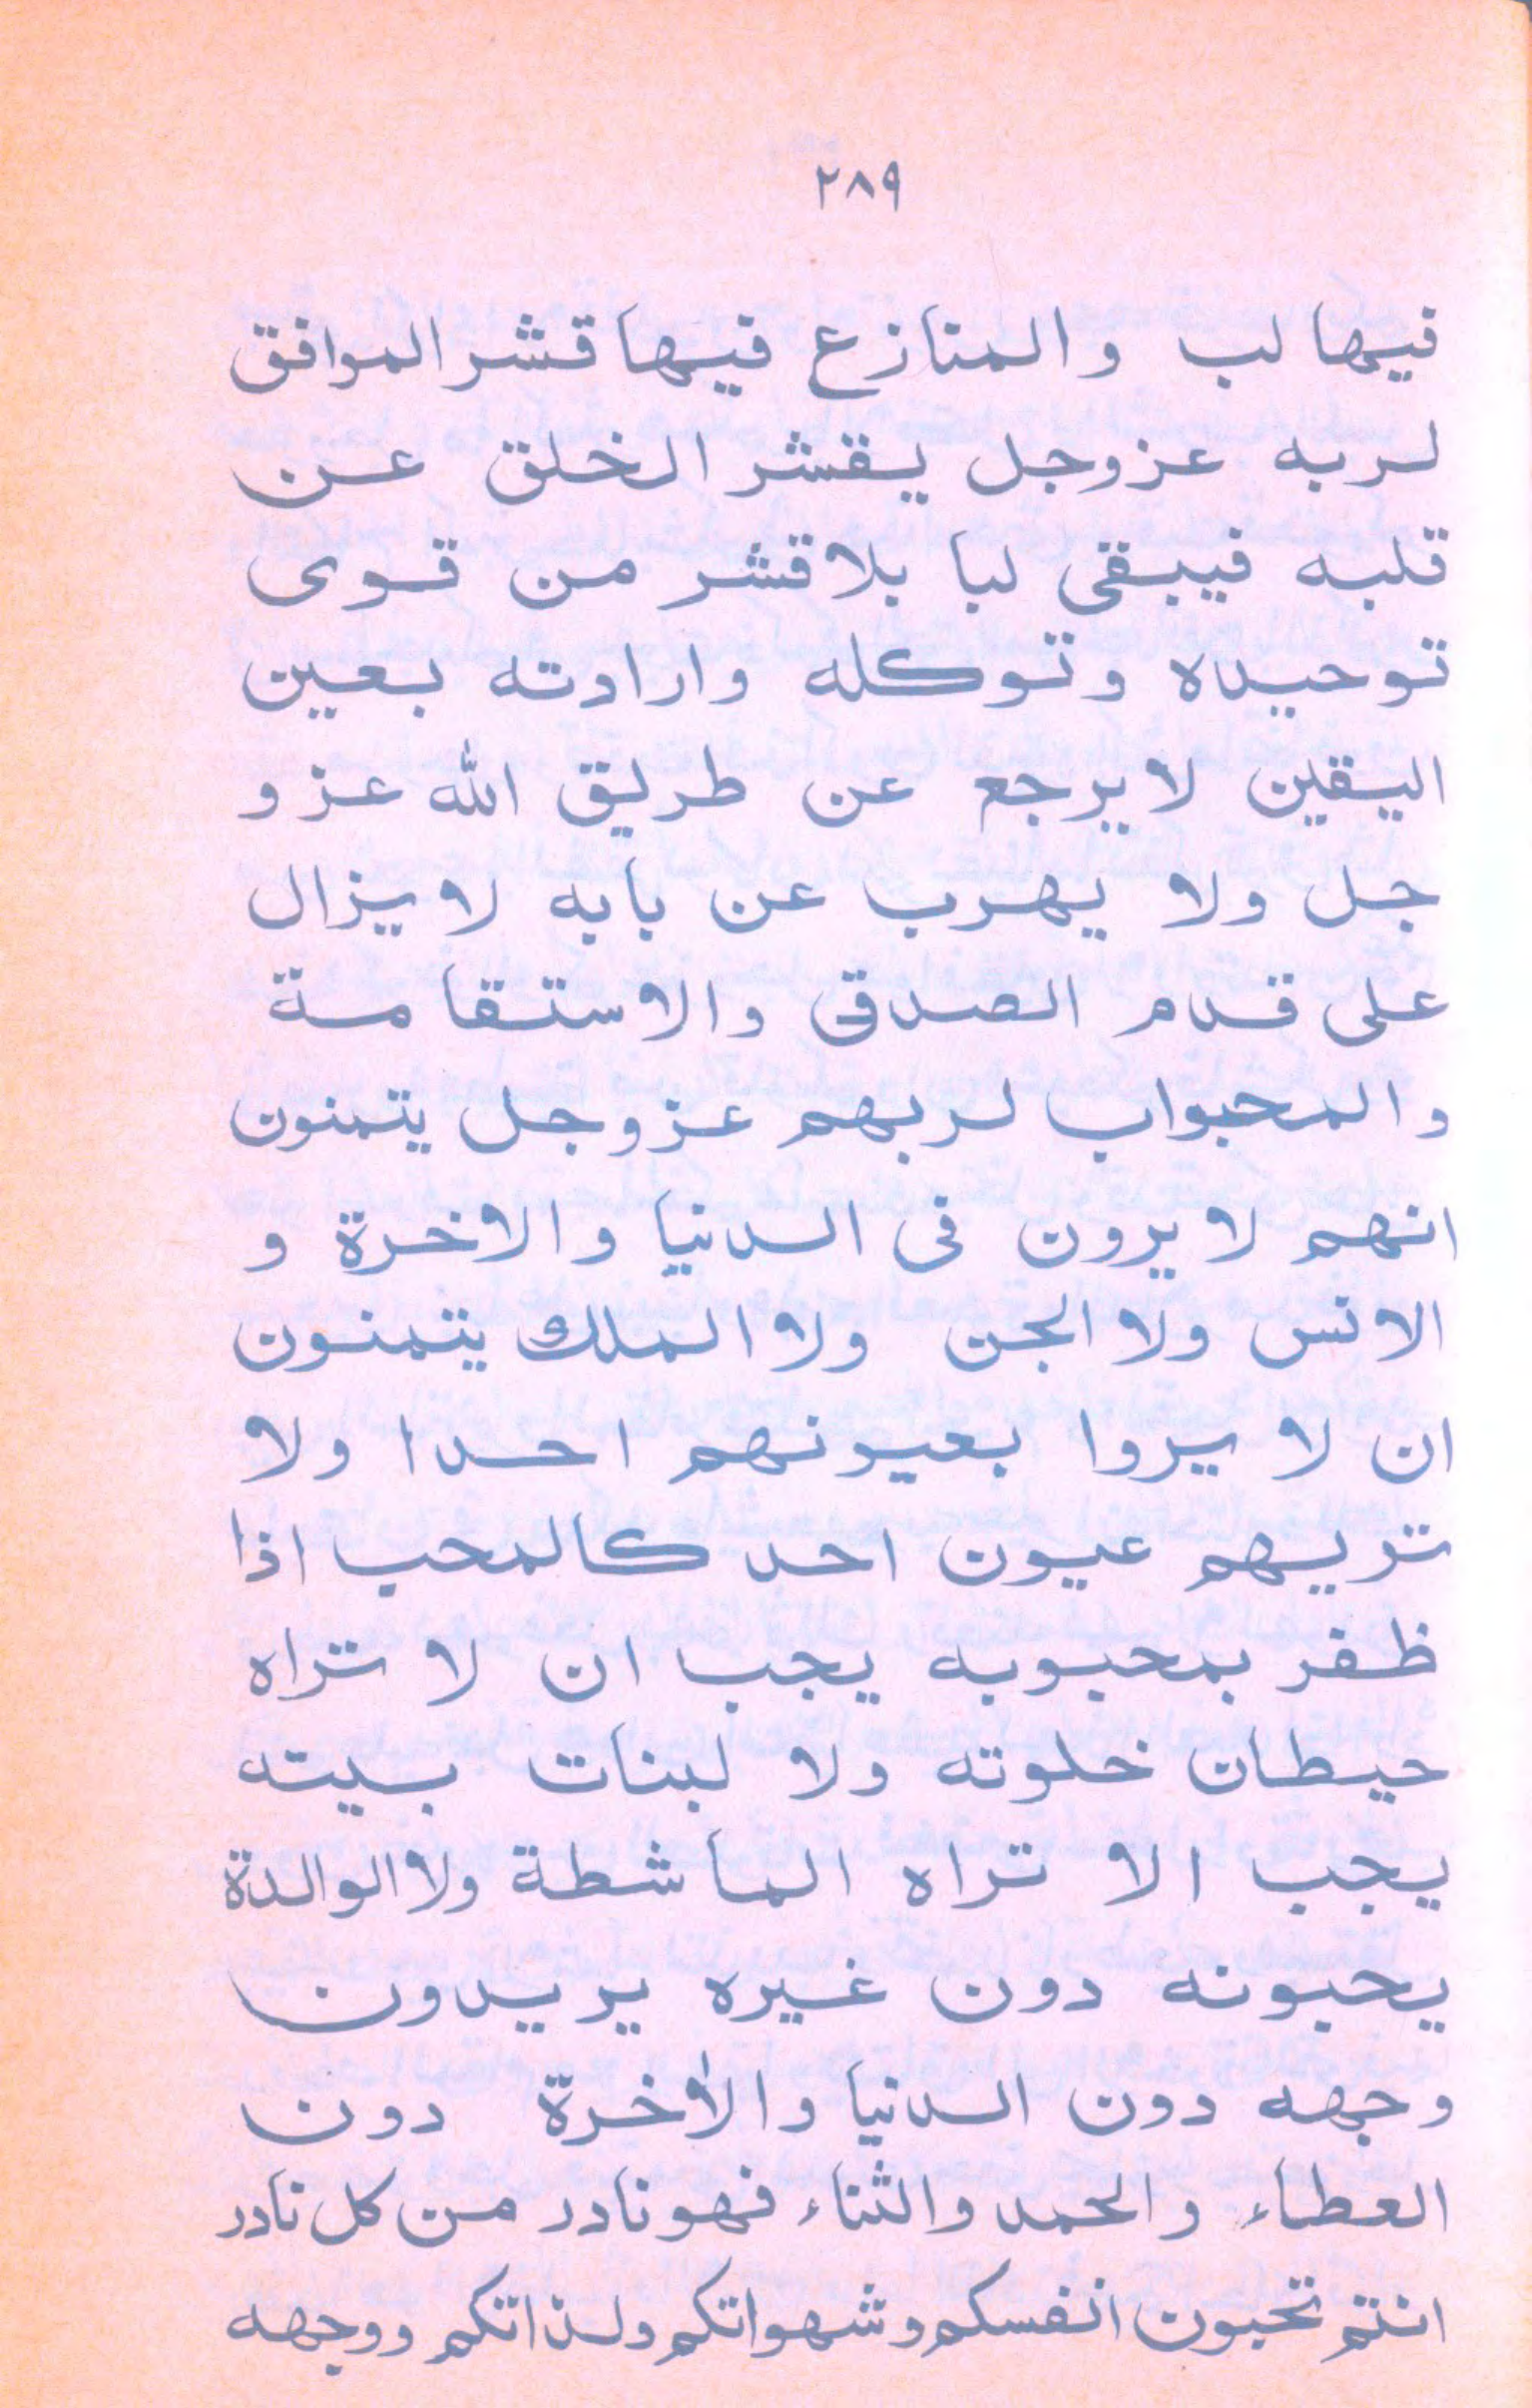 ٢٨٩
فيها لب والمنازع فيها قشر الموافق
لربه عزوجل يقشر الخلق عن
قلبه فيبقى لبا بلا قشر من قوى
توحيده وتوكله وارادته بعين
اليقين لا يرجع عن طريق الله عز و
جل ولا يهرب عن بابه لا يزال
على قدم الصدق والاستقامة
والمحبواب لربهم عزوجل يتمنون
انهم لا يرون فى الدنيا والاخرة و
الانس ولا الجن ولا الملك يتمنون
ان لا يروا بعيونهم احدا ولا
تريهم عيون احد كالمحب اذا
ظفر بمحبوبه يجب ان لا تراه
حيطان خلوته ولا لبنات بيته
يجب الا تراه الماشطة ولا الوالدة
يحبونه دون غيره يريدون
وجهه دون الدنيا والأخرة دون
العطاء والحمد والثناء فهو نادر من كل نادر
انتم تحبون انفسكم وشهواتكم ولذاتكم ووجهه